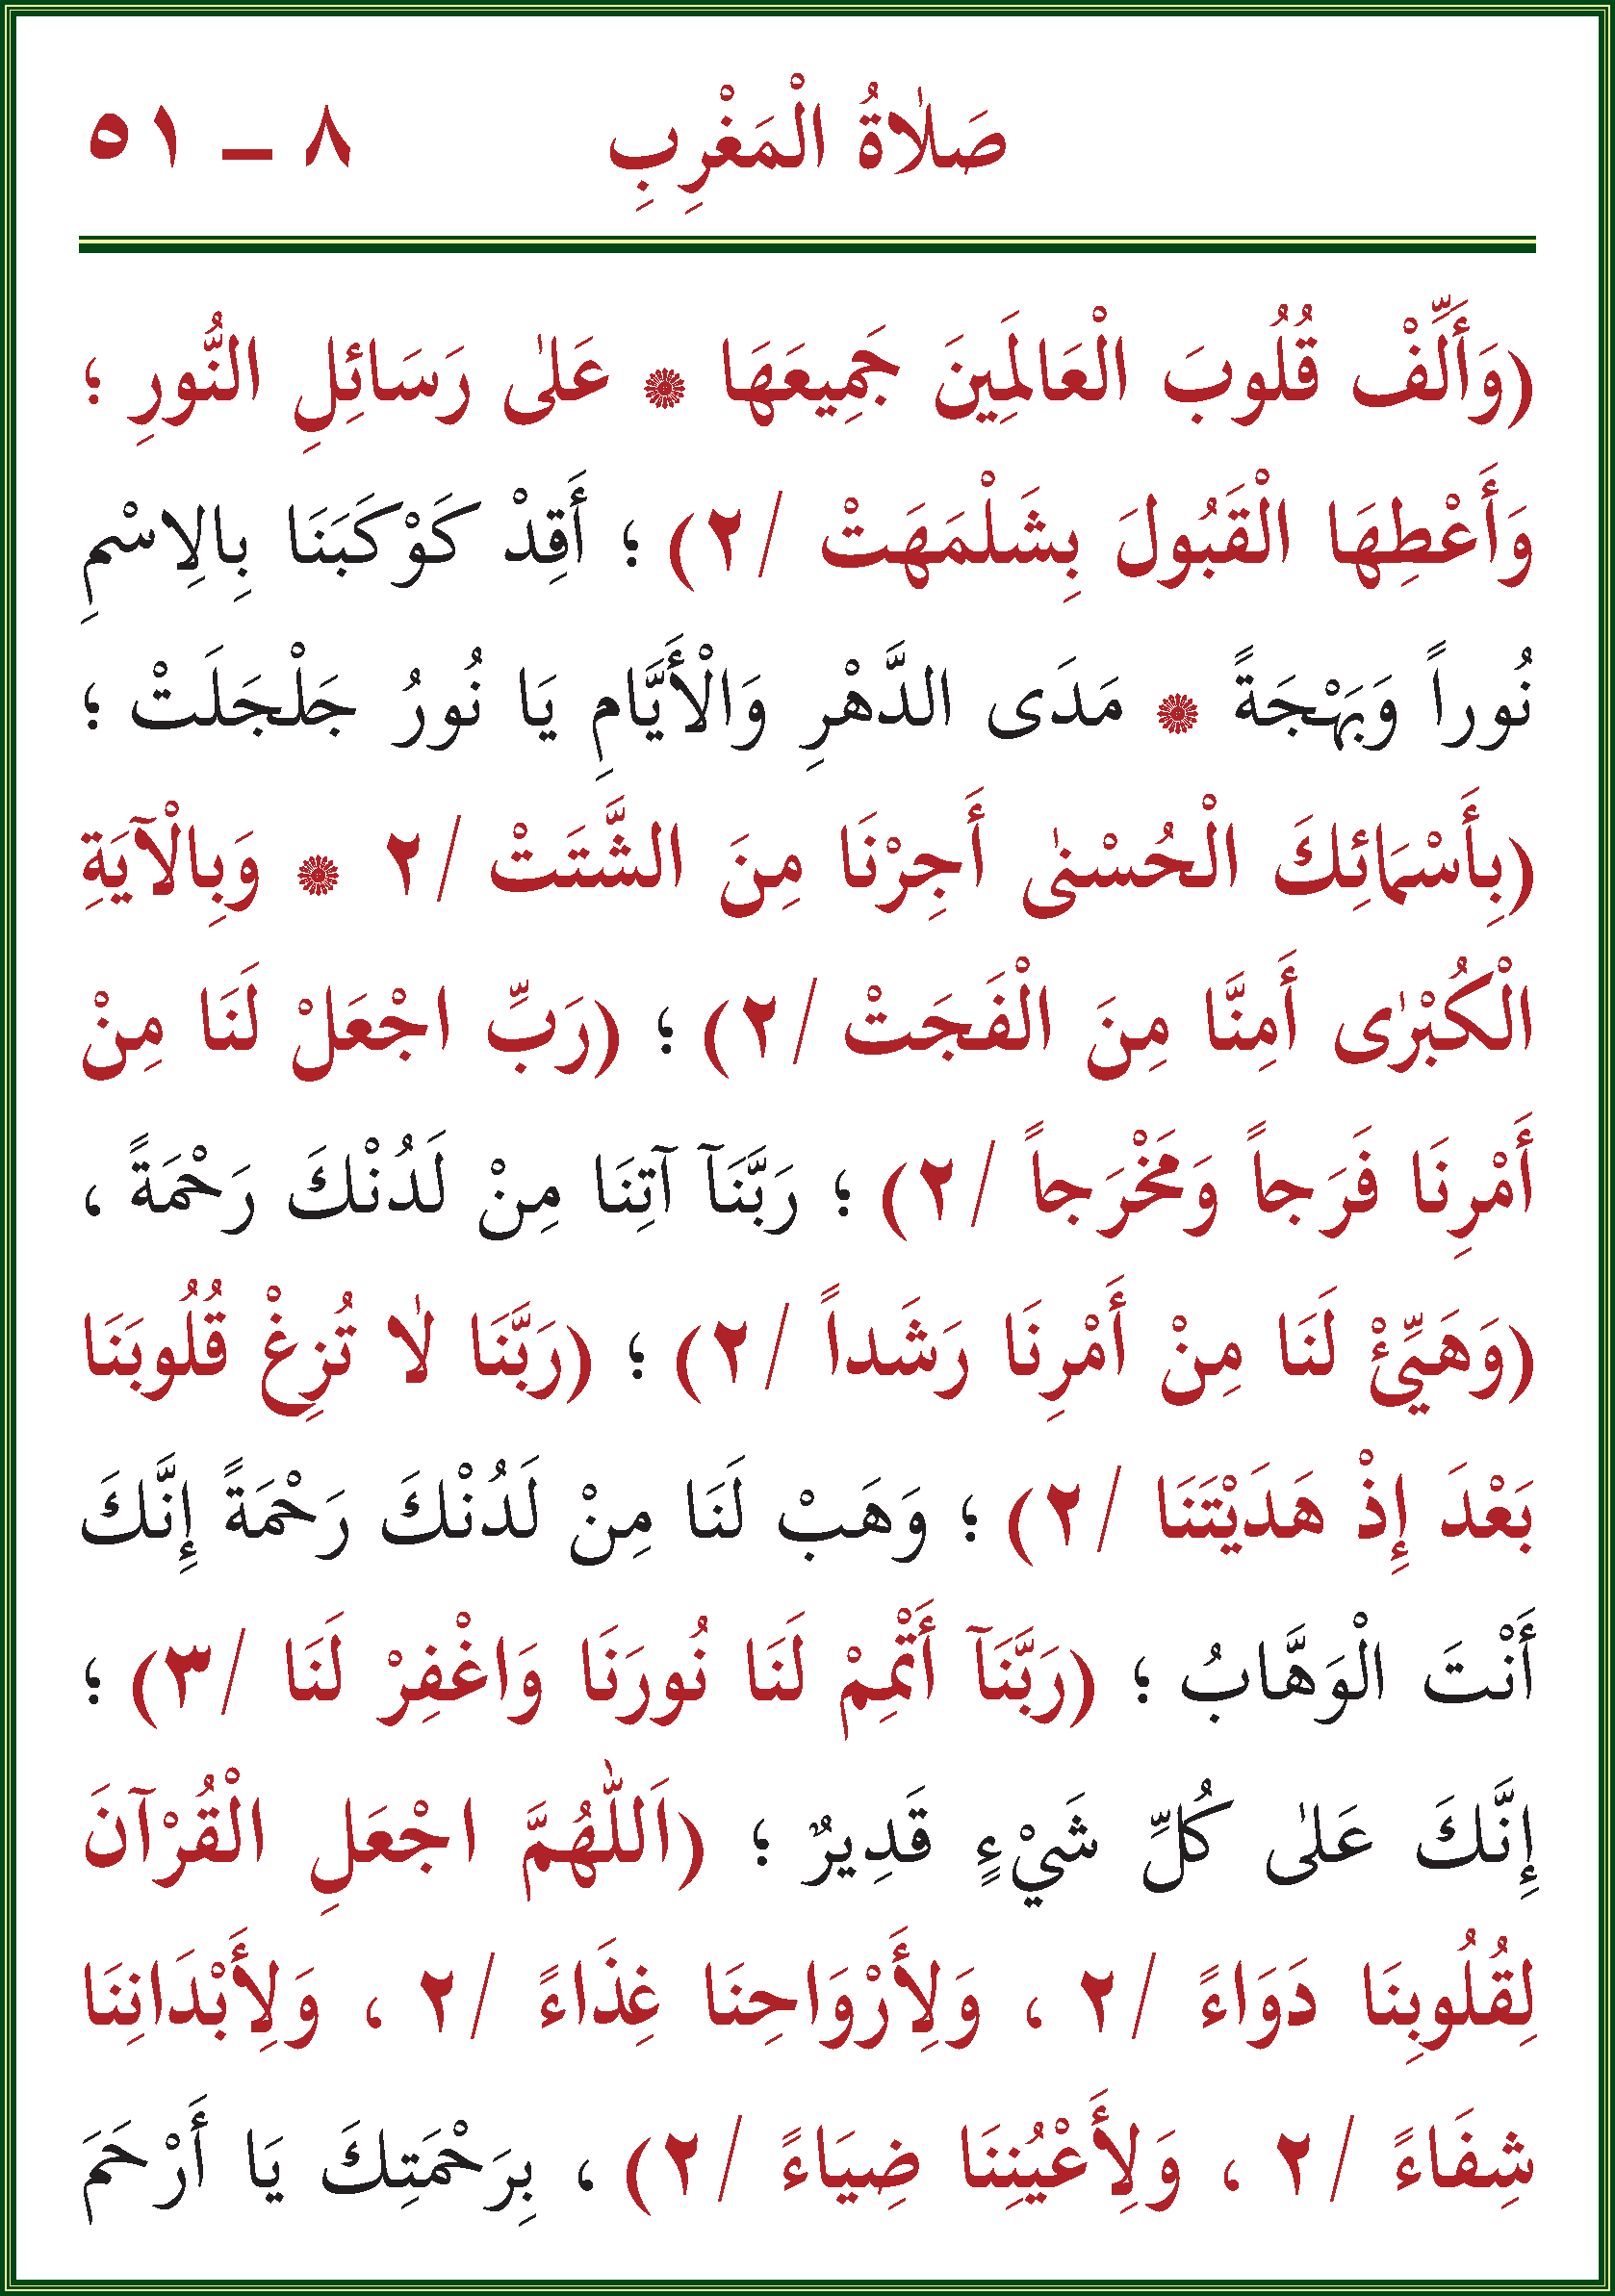 صَلٰاةُ الْمَغْرِبِ ٨ ـ ٥١
(وَأَلِّفْ قُلُوبَ الْعَالَمِينَ جَمِيعَهَا ۞ عَلىٰ رَسَائِلِ النُّورِ ؛
وَأَعْطِهَا الْقَبُولَ بِشَلْمَهَتْ /٢) ؛ أَقِدْ كَوْكَبَنَا بِالِاسْمِ
نُوراً وَبَهْجَةً ۞ مَدَى الدَّهْرِ وَالْأَيَّامِ يَا نُورُ جَلْجَلَتْ ؛
(بِأَسْمَائِكَ الْحُسْنىٰ أَجِرْنَا مِنَ الشَّتَتْ /٢ ۞ وَبِالْآيَةِ
الْكُبْرٰى أَمِنَّا مِنَ الْفَجَتْ /٢) ؛ (رَبِّ اجْعَلْ لَنَا مِنْ
أَمْرِنَا فَرَجاً وَمَخْرَجاً /٢) ؛ رَبَّنَآ آتِنَا مِنْ لَدُنْكَ رَحْمَةً ،
(وَهَيِّئْ لَنَا مِنْ أَمْرِنَا رَشَداً /٢) ؛ (رَبَّنَا لٰا تُزِغْ قُلُوبَنَا
بَعْدَ إِذْ هَدَيْتَنَا /٢) ؛ وَهَبْ لَنَا مِنْ لَدُنْكَ رَحْمَةً إِنَّكَ
أَنْتَ الْوَهَّابُ ؛ (رَبَّنَآ أَتْمِمْ لَنَا نُورَنَا وَاغْفِرْ لَنَا /٣) ؛
إِنَّكَ عَلىٰ كُلِّ شَيْءٍ قَدِيرٌ ؛ (اَللّٰهُمَّ اجْعَلِ الْقُرْآنَ
لِقُلُوبِنَا دَوَاءً /٢ ، وَلِأَرْوَاحِنَا غِذَاءً /٢ ، وَلِأَبْدَانِنَا
شِفَاءً /٢ ، وَلِأَعْيُنِنَا ضِيَاءً /٢) ، بِرَحْمَتِكَ يَا أَرْحَمَ